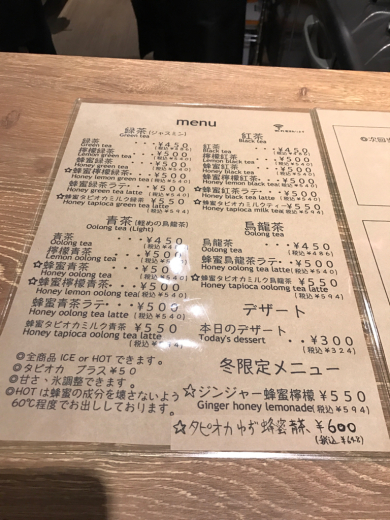 menu
緑茶 (ジャスミン)
Green tea
緑茶 ・・・¥450
Green tea (税込¥486)
檸檬緑茶 ・・¥500
Lemon green tea (税込¥540)
蜂蜜緑茶 ・・¥500
Honey green tea (税込¥540)
☆蜂蜜檸檬緑茶・¥500
Honey lemon green tea(税込¥540)
蜂蜜緑茶ラテ・¥500
Honey green tea latte (税込¥540)
☆蜂蜜タピオカミルク緑茶 ¥550
Honey tapioca green tea latte (税込¥594)
青茶 (軽めの烏龍茶)
Oolong tea (Light)
青茶 ・・・¥450
Oolong tea (税込¥486)
檸檬青茶 ・・¥500
Lemon oolong tea (税込¥540)
☆蜂蜜青茶 ・・¥500
Honey oolong tea (税込¥540)
☆蜂蜜檸檬青茶・¥500
Honey lemon oolong tea(税込¥540)
蜂蜜青茶ラテ・・¥500
Honey oolong tea latte (税込¥540)
蜂蜜タピオカミルク青茶 ¥550
Honey tapioca oolong tea latte (税込¥594)
◎全商品 ICE or HOT できます。
◎タピオカ プラス¥50
◎甘さ・氷調整できます。
◎HOTは蜂蜜の成分を壊さないよう
60℃程度でお出ししております。
紅茶
Black tea
紅茶 ・・・¥450
Black tea (税込¥486)
檸檬紅茶 ・・¥500
Lemon black tea (税込¥540)
蜂蜜紅茶 ・・¥500
Honey black tea (税込¥540)
蜂蜜檸檬紅茶・¥500
Honey lemon black tea(税込¥540)
☆蜂蜜紅茶ラテ・・¥500
Honey black tea latte (税込¥540)
☆蜂蜜タピオカミルクティー¥550
Honey tapioca milk tea (税込¥594)
烏龍茶
Oolong tea
烏龍茶 ・・¥450
Oolong tea (税込¥486)
蜂蜜烏龍茶ラテ・¥500
Honey oolong tea latte(税込¥540)
☆蜂蜜タピオカミルク烏龍茶 ¥550
Honey tapioca oolomg tea latte (税込¥594)
デザート
本日のデザート
Today's dessert ・・¥300
(税込¥324)
冬限定メニュー
☆ジンジャー蜂蜜檸檬 ¥550
Ginger honey lemonade(税込¥594)
☆タピオカゆず蜂蜜青茶、¥600
(税込¥648)
◎次回